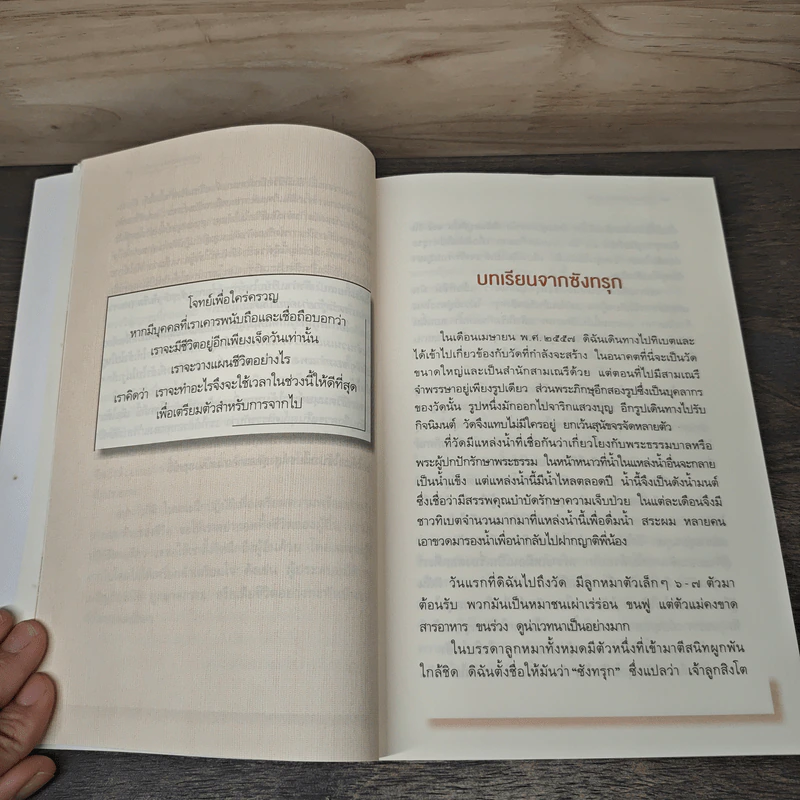 โจทย์เพื่อใคร่ครวญ
หากมีบุคคลที่เราเคารพนับถือและเชื่อถือบอกว่า
เราจะมีชีวิตอยู่อีกเพียงเจ็ดวันเท่านั้น
เราจะวางแผนชีวิตอย่างไร
เราคิดว่า เราจะทำอะไรจึงจะใช้เวลาในช่วงนี้ให้ดีที่สุด
เพื่อเตรียมตัวสำหรับการจากไป
บทเรียนจากซังทรุก
ในเดือนเมษายน พ.ศ.๒๕๕๗ ดิฉันเดินทางไปทิเบตและ
ได้เข้าไปเกี่ยวข้องกับวัดที่กำลังจะสร้าง ในอนาคตที่นี่จะเป็นวัด
ขนาดใหญ่และเป็นสำนักสามเณรีด้วย แต่ตอนที่ไปมีสามเณรี
จำพรรษาอยู่เพียงรูปเดียว ส่วนพระภิกษุอีกสองรูปซึ่งเป็นบุคลากร
ของวัดนั้น รูปหนึ่งมักออกไปจาริกแสวงบุญ อีกรูปเดินทางไปรับ
กิจนิมนต์ วัดจึงแทบไม่มีใครอยู่ ยกเว้นสุนัขจรจัดหลายตัว
ที่วัดมีแหล่งน้ำที่เชื่อกันว่าเกี่ยวโยงกับพระธรรมบาลหรือ
พระผู้ปกปักรักษาพระธรรม ในหน้าหนาวที่น้ำในแหล่งน้ำอื่นจะกลาย
เป็นน้ำแข็ง แต่แหล่งน้ำนี้มีน้ำไหลตลอดปี น้ำนี้จึงเป็นดังน้ำมนต์
ซึ่งเชื่อว่ามีสรรพคุณบำบัดรักษาความเจ็บป่วย ในแต่ละเดือนจึงมี
ชาวทิเบตจำนวนมากมาที่แหล่งน้ำนี้เพื่อดื่มน้ำ สระผม หลายคน
เอาขวดมารองน้ำเพื่อนำกลับไปฝากญาติพี่น้อง
วันแรกที่ดิฉันไปถึงวัด มีลูกหมาตัวเล็กๆ ๖-๗ ตัวมา
ต้อนรับ พวกมันเป็นหมาชนเผ่าเร่ร่อน ขนฟู แต่ตัวแม่คงขาด
สารอาหาร ขนร่วง ดูน่าเวทนาเป็นอย่างมาก
ในบรรดาลูกหมาทั้งหมดมีตัวหนึ่งที่เข้ามาตีสนิทผูกพัน
ใกล้ชิด ดิฉันตั้งชื่อให้มันว่า "ซังทรุก" ซึ่งแปลว่า เจ้าลูกสิงโต